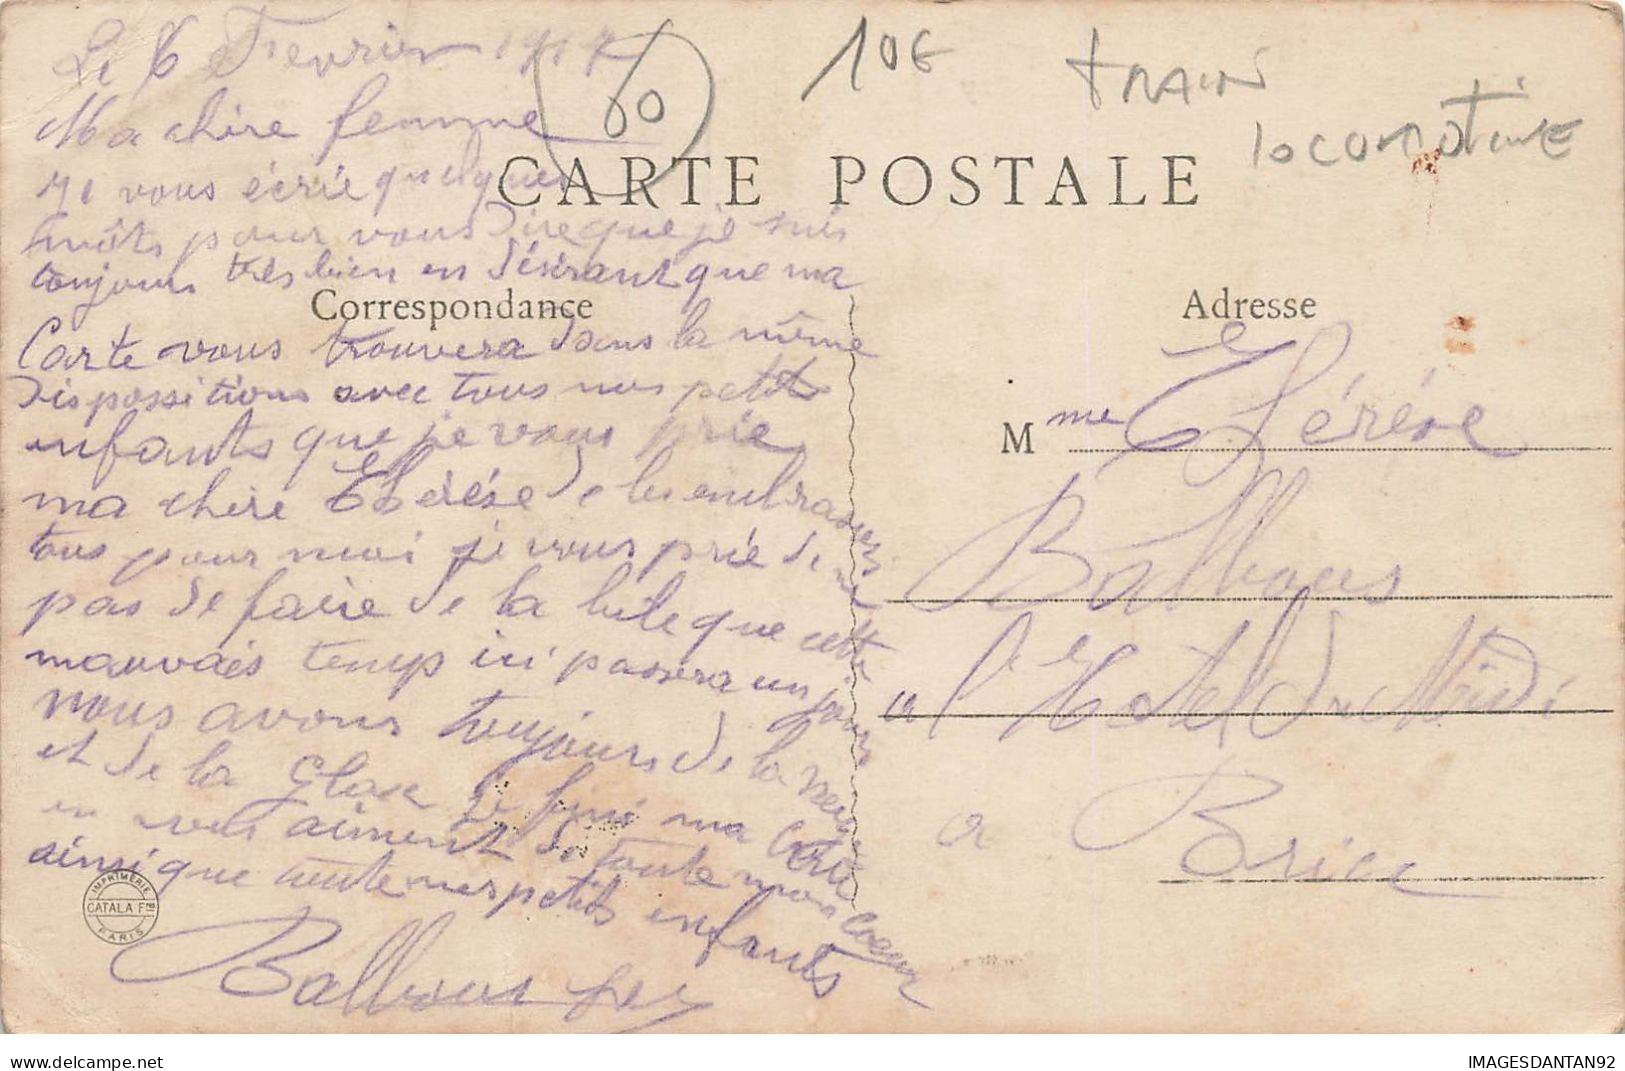 Le 6 Fevrier 1917
60
10€
train
locomotive
Ma chère femme
CARTE POSTALE
Je vous écrie quelques
mots pour vous dire que je suis
toujours très bien en désirant que ma
Correspondance
Carte vous trouvera dans la même
dispossitions avec tous nos petits
enfants que je vous prie
ma chère Thérèse de les embrasser
tous pour moi je vous prie de ne
pas de faire de la bile que cette
mauvais temp ici passera un jour
nous avons toujours de la neige
et de la Glace je fini ma Carte
en vous aiment de toute mon Coeur
ainsi que toute nes petits enfants
Balbous
IMPRIMERIE
CATALA Fres
PARIS
Adresse
Mme Thérése
Balbous
a l'Hotel du Midi
a Brie
delcampe.net
IMAGESDANTAN92